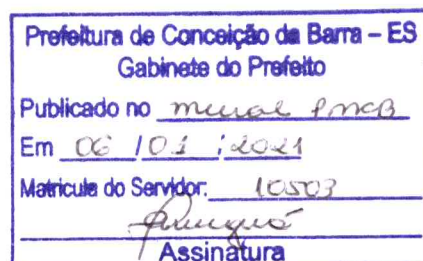 Prefeitura de Conceição da Barra – ES
Gabinete do Prefeito
Publicado no mural PMCB
Em 06 / 01 / 2021
Matricula do Servidor: 10503
Assinatura